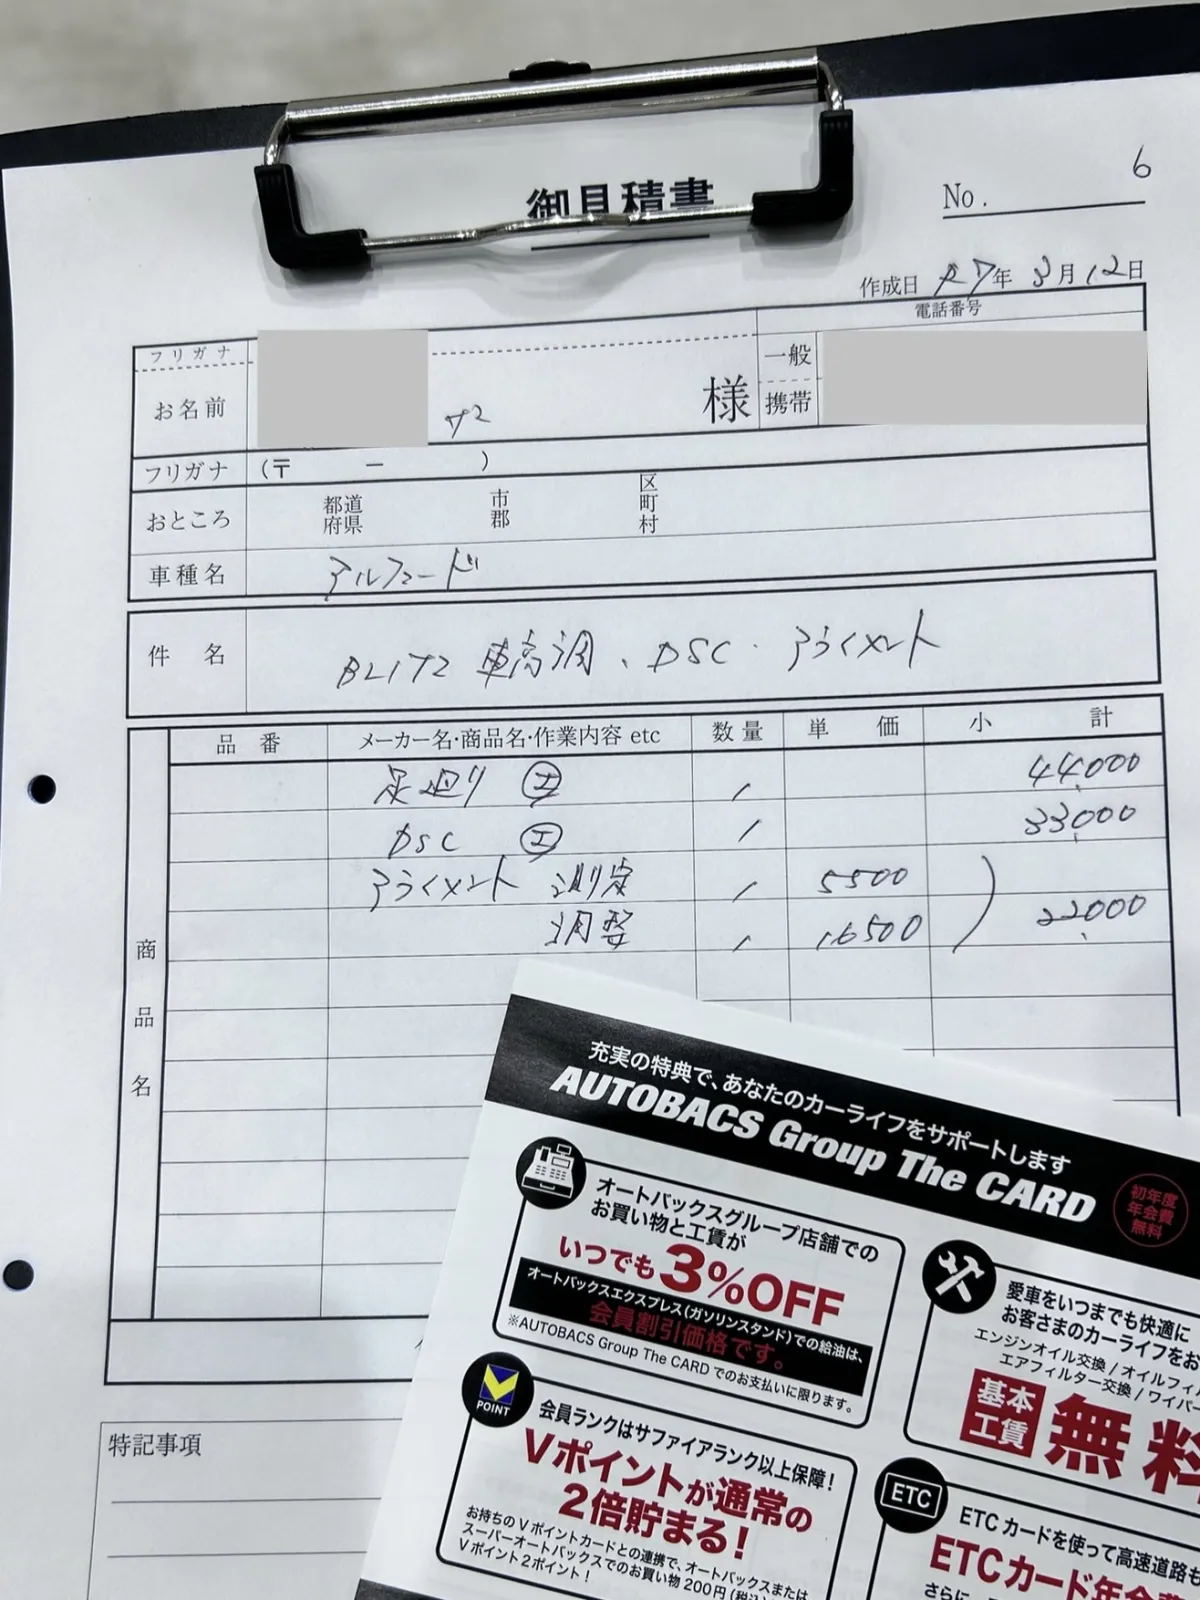 御見積書
No. 6
作成日 R7年 3月12日
電話番号
フリガナ
お名前 様
一般
携帯
フリガナ (〒 － )
おところ 都道府県 市郡 区町村
車種名 アルファード
件名 BLITZ 車高調、DSC・アライメント
品番 メーカー名・商品名・作業内容 etc 数量 単価 小計
商品名
足廻り ㊤ 1 44,000
DSC ㊤ 1 33,000
アライメント 測定 1 5500
調整 1 16500 ) 22,000
特記事項
充実の特典で、あなたのカーライフをサポートします
AUTOBACS Group The CARD
初年度
年会費
無料
オートバックスグループ店舗での
お買い物と工賃が
いつでも3%OFF
オートバックスエクスプレス(ガソリンスタンド)での給油は、
会員割引価格です。
※AUTOBACS Group The CARD でのお支払いに限ります。
愛車をいつまでも快適に
お客さまのカーライフをお
エンジンオイル交換 / オイルフィ
エアフィルター交換 / ワイパー
基本
工賃
無料
POINT
会員ランクはサファイアランク以上保障!
Vポイントが通常の
2倍貯まる!
お持ちのVポイントカードとの連携で、オートバックスまたは
スーパーオートバックスでのお買い物200円(税込)
Vポイント2ポイント!
ETC
ETCカードを使って高速道路も
ETCカード年会
さらに